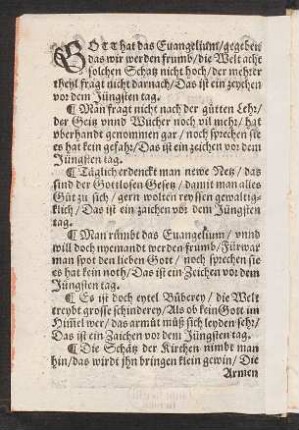 GOTT hat das Euangelium/gegeben
das wir werden frumb/die Welt acht
solchen Schatz nicht hoch/der mehrer
theyl fragt nicht darnach/Das ist ein zeychen
vor dem Jüngsten tag.
¶ Man fragt nicht nach der gütten Lehr/
der Geitz vnnd Wucher noch vil mehr/hat
vberhandt genommen gar/noch sprechen sie
es hat kein gefahr/Das ist ein zeichen vor dem
Jüngsten tag.
¶ Täglich erdenckt man newe Netz/das
sind der Gottlosen Gesetz/damit man alles
Gůt zů sich/gern wolten reyssen gewaltig-
klich/Das ist ein zaichen vor dem Jüngsten
tag.
¶ Man růmbt das Euangelium/vnnd
will doch nyemandt werden frumb/Fürwar
man spot den lieben Gott/noch sprechen sie
es hat kein noth/Das ist ein Zeichen vor dem
Jüngsten tag.
¶ Es ist doch eytel Büberey/die Welt
treybt grosse schinderey/Als ob kein Gott im
Himel wer/das armůt můß sich leyden sehr/
Das ist ein Zaichen vor dem Jüngsten tag.
¶ Die Schätz der Kirchen nimbt man
hin/das wirdt jhn bringen klein gewin/Die
Armen